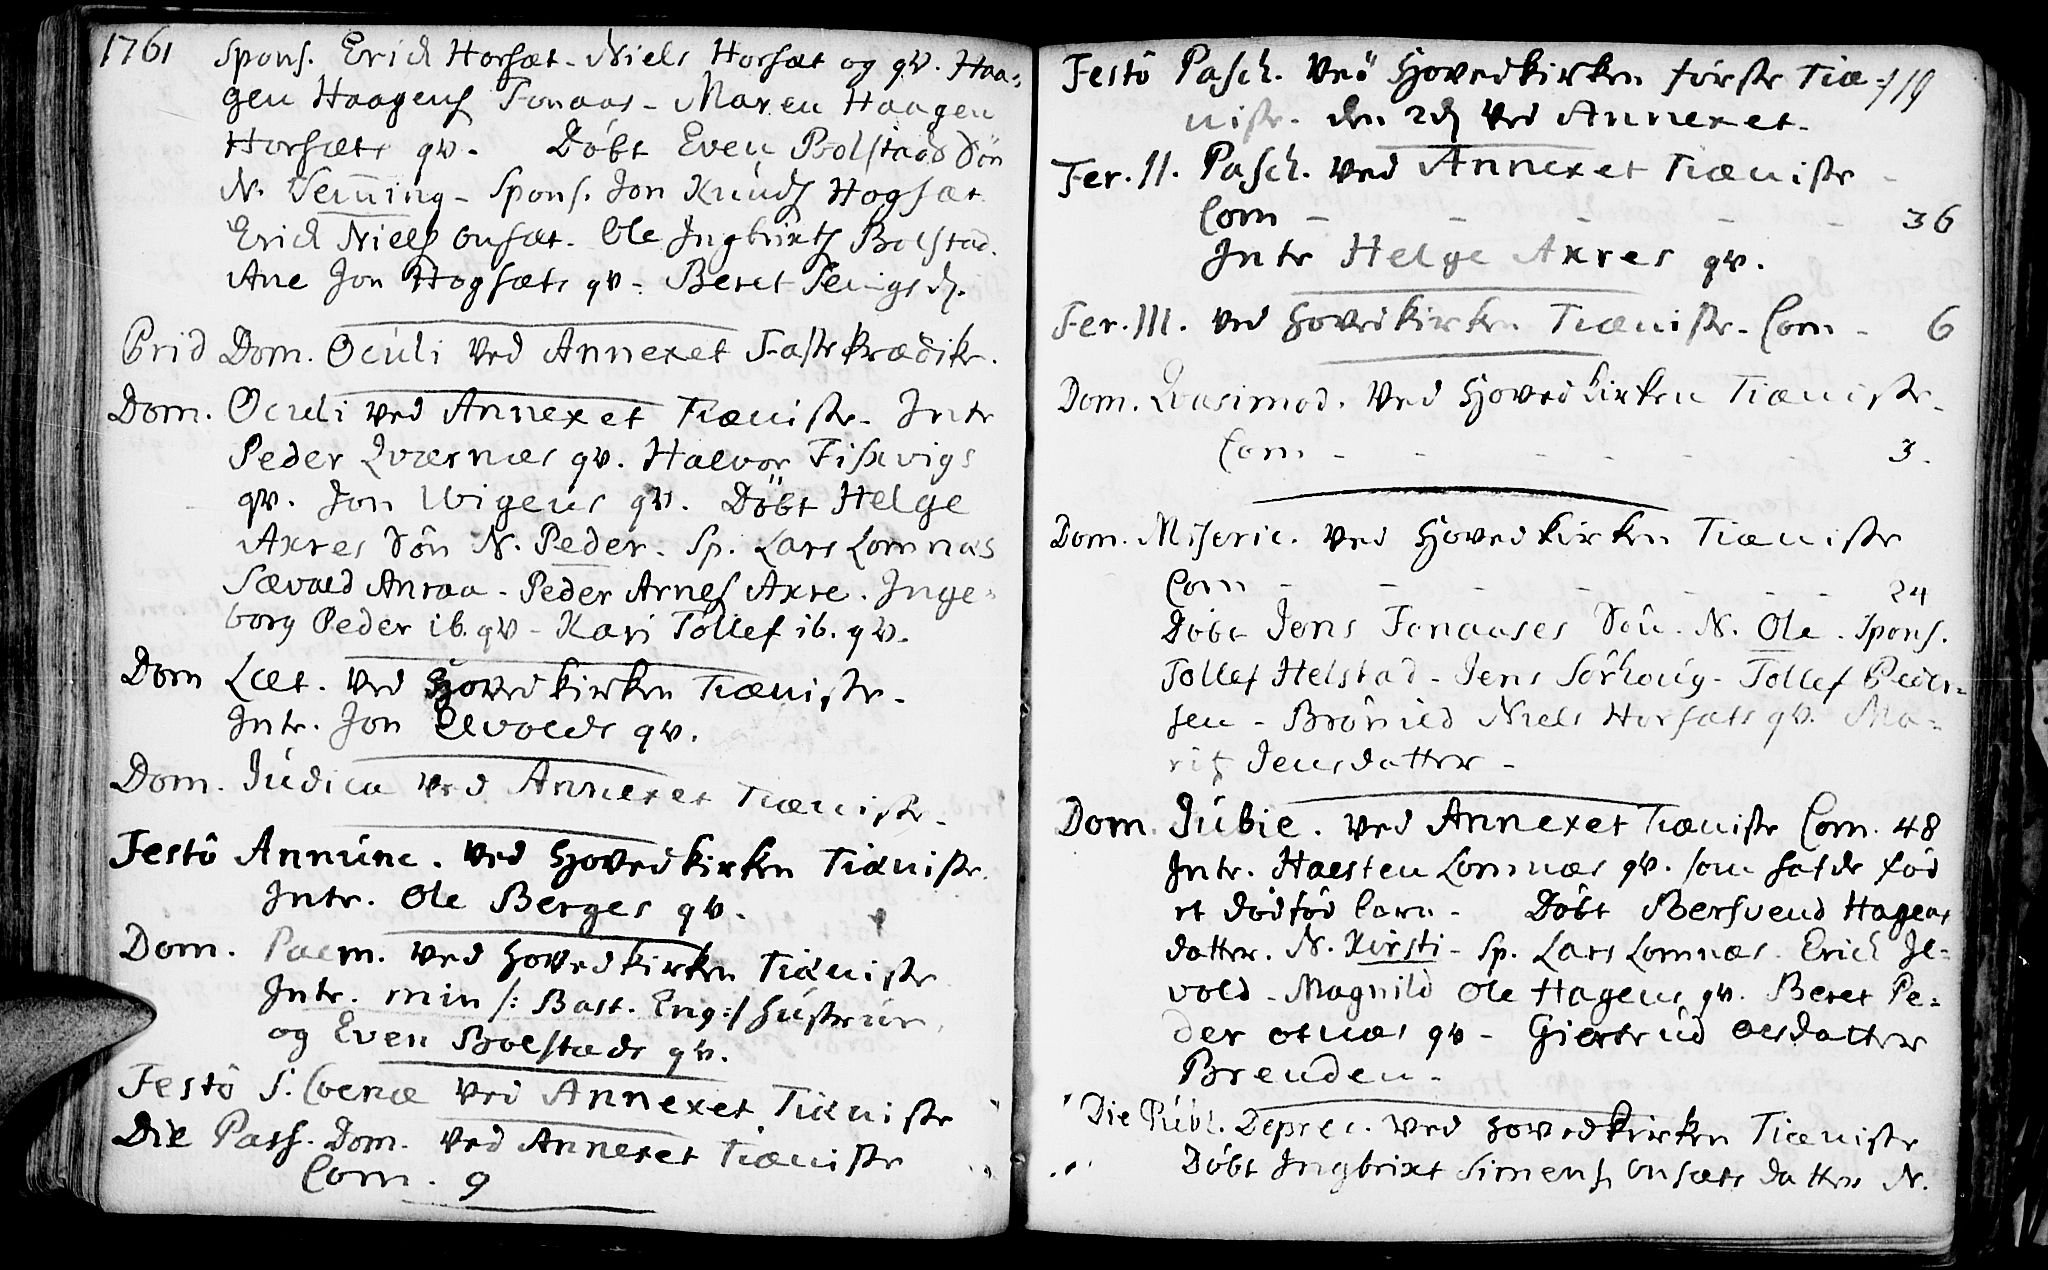 1761 Spons. Erich Horsæt - Niels Horsæt og qv. Haa-
gen Haagens Fonaas - Maren Haagen
Horsæts qv. Döbt Even Bolstads Sön
N. Semming - Spons. Jon Knuds Hogsæt
Erich Niels Onsæt. Ole Ingbrixts Bolstad.
Ane Jon Hogsæts qv - Beret
Prid Dom. Oculi ved Annexet Faste Prædik.
Dom. Oculi ved Annexet Tiæniste - Intr
Peder Qværnæs qv. Halvor Fiskvigs
qv. Jon Wigens qv. Döbt Helge
Axres Sön N. Peder. Sp. Lars Lomnæs
Sævald Anraa - Peder Arnes Axre. Inge-
borg Peder ib. qv - Kari Tollef ib. qv.
Dom Læt. ved Hovedkirken Tiæniste -
Intr. Jon Elvolds qv.
Dom. Judica ved Annexet Tiæniste -
Festo Annunc. ved Hovedkirken Tiæniste.
Intr. Ole Berges qv.
Dom. Palm. ved Hovedkirken Tiæniste
Intr. min /: Bast. Eng:/ Hustrue
og Even Bolstads qv.
Festo S. Coenæ ved Annexet Tiæniste
Die Pass. Dom. ved Annexet Tiæniste
Com. 9
Festo Pasch. ved Hovedkirken förste Tiæ- 119
niste. den 2d ved Annexet.
Fer. II. Pasch. ved Annexet Tiæniste -
Com - - - - - 36
Intr Helge Axres qv.
Fer. III. ved Hovedkirken Tiæniste - Com - 6
Dom. Qvasimod. ved Hovedkirken Tiæniste -
Com - - - - - - 3.
Dom. Miseric. ved Hovedkirken Tiæniste
Com - - - - - - 24
Döbt Jens Fonaases Sön. N. Ole. Spons.
Tollef Helstad - Jens Sörhoug - Tollef Peder-
sen - Brönild Niels Horsæts qv. Ma-
rit Jensdatter -
Dom. Jubil. ved Annexet Tiæniste Com. 48
Intr. Halsten Lomnæs qv. som hafde fød
et dødfød barn - Döbt Bersvend Hagens
datter. N. Kirsti - Sp. Lars Lomnæs. Erich Il-
vold - Magnild Ole Hagens qv. Beret Pe-
der Otnæs qv - Giertrud Olsdatter
Brenden -
Die Publ. Deprec. ved Hovedkirken Tiæniste
Döbt Ingbrixt Simens Onsæts datter N.